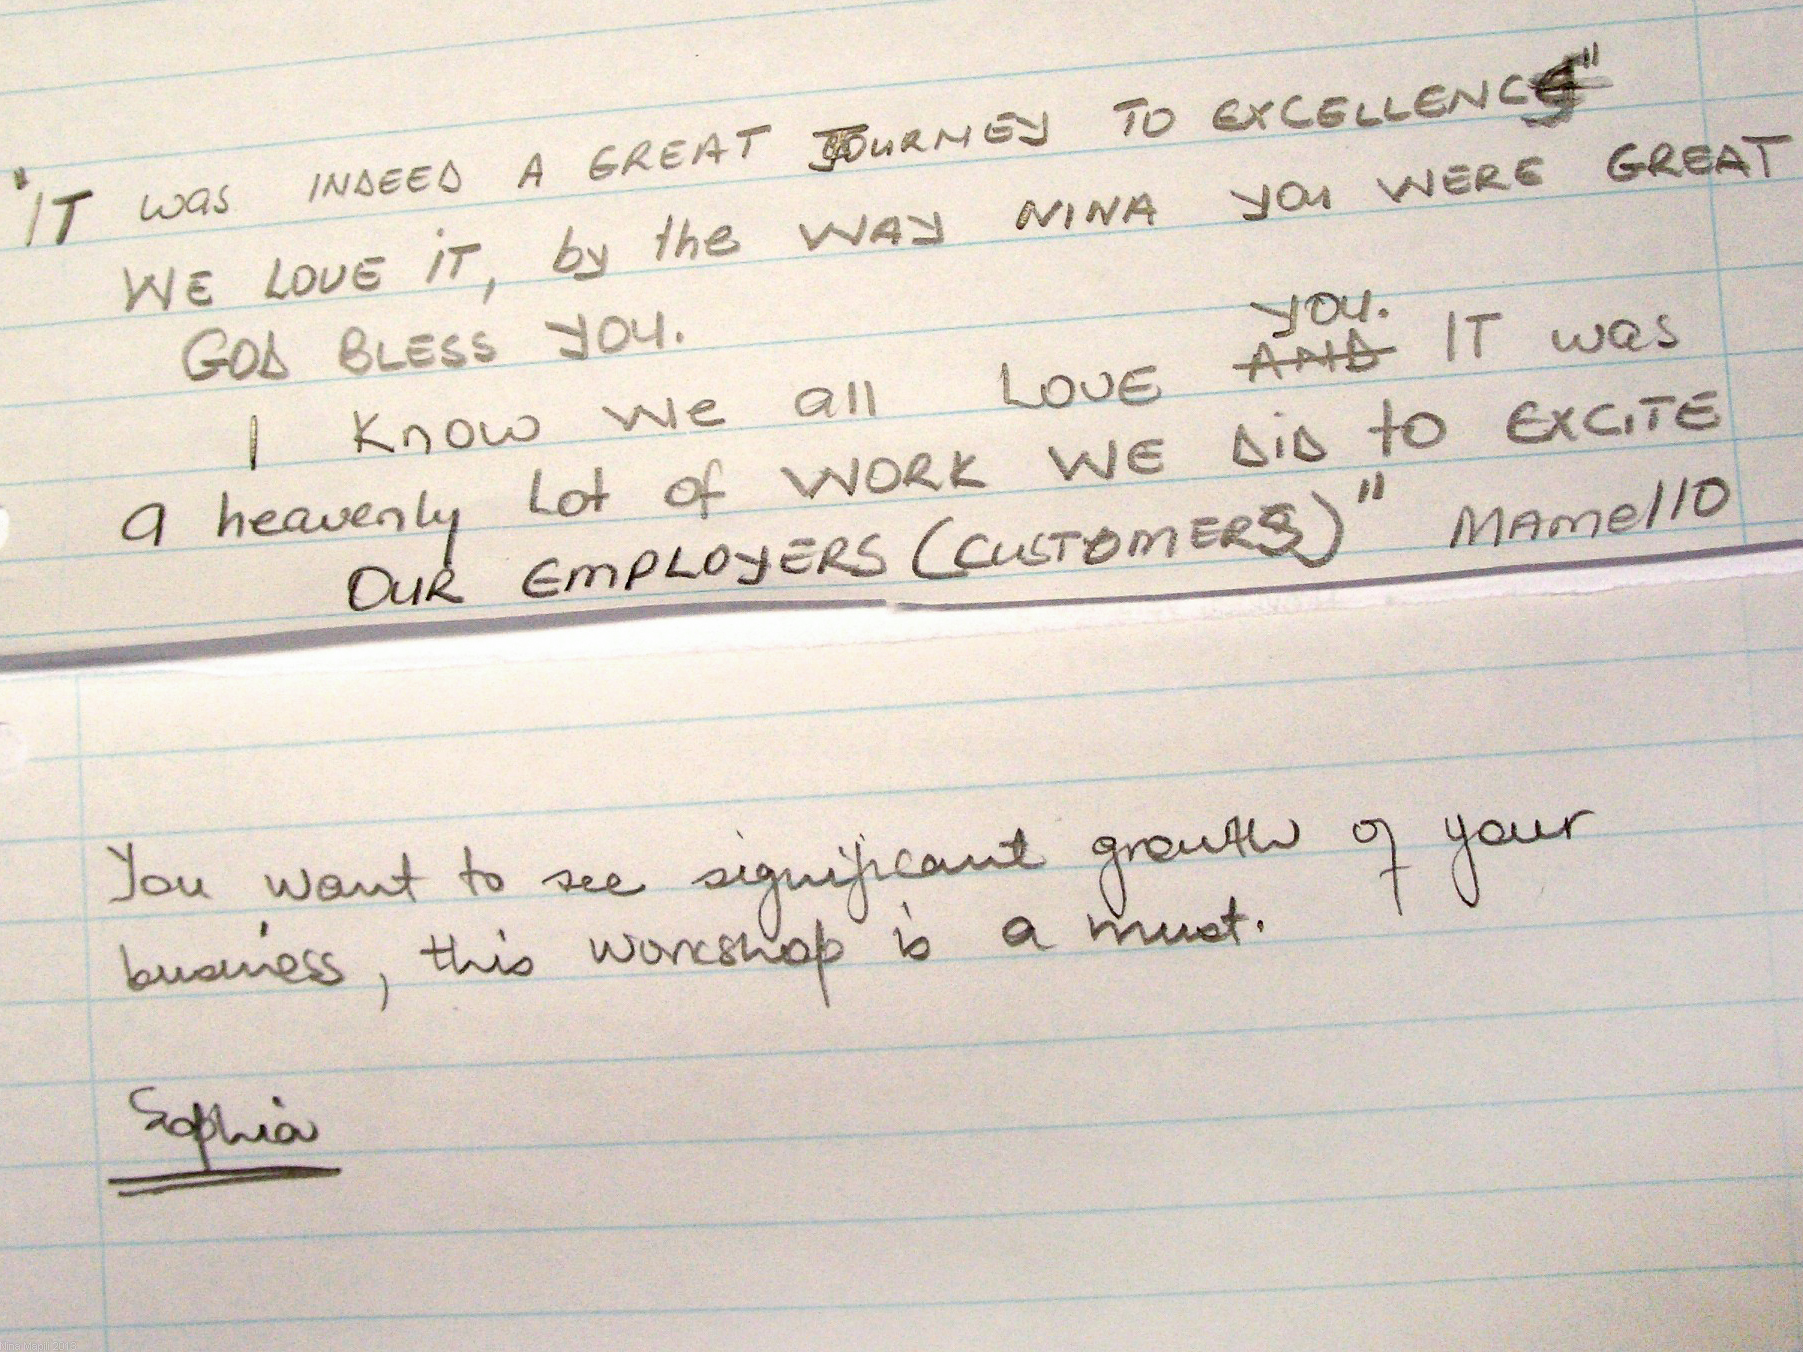 "IT was INDEED A GREAT JOURNEY TO EXCELLENCE"
WE LOVE iT, by the WAY NINA you WERE GREAT
GOD BLESS YOU.
I Know We all LOVE you. AND IT was
a heavenly Lot of WORK WE DiD to EXCiTE
OUR EMPLOYERS (CUSTOMERS)" MAmello
You want to see significant growth of your
business, this workshop is a must.
Sophia